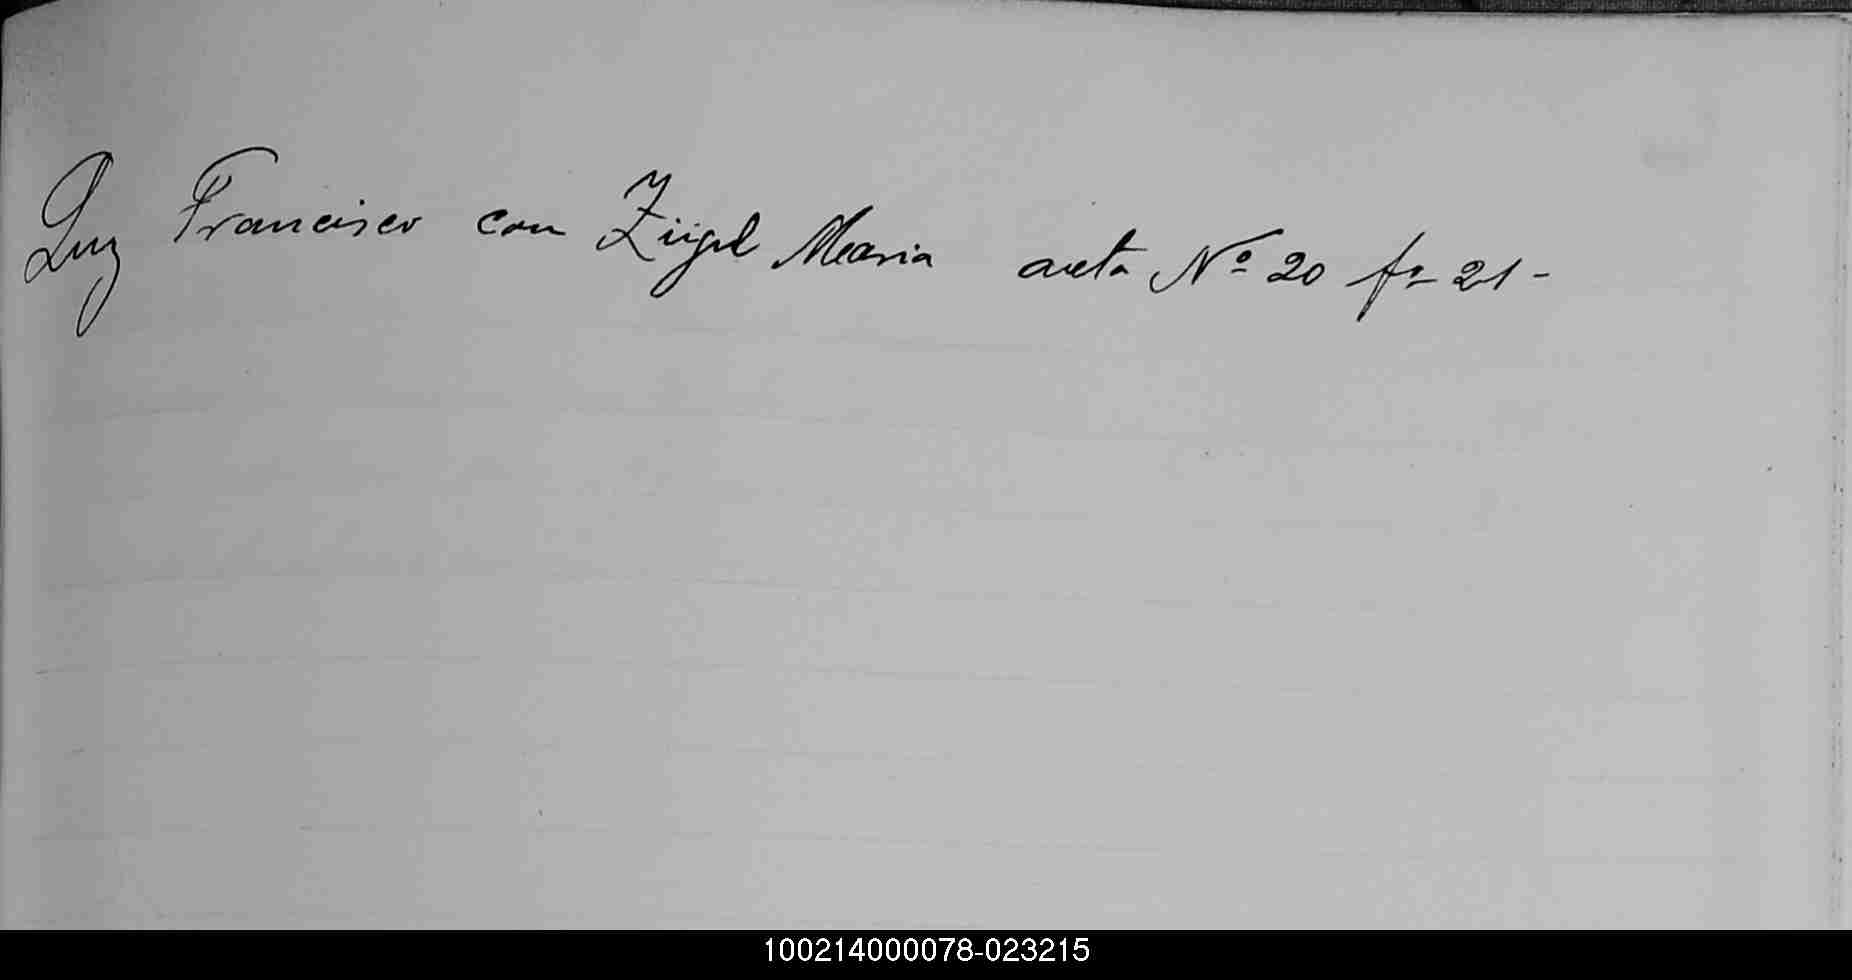 Luz Francisco con Zügel Maria acta Nº 20 fº 21-
100214000078-023215